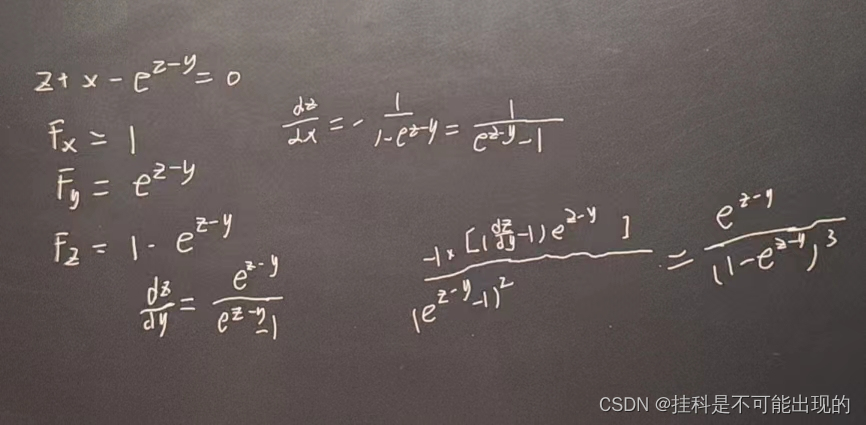 z + x - e^{z-y} = 0
F_x = 1
F_y = e^{z-y}
F_z = 1 - e^{z-y}
dz/dy = e^{z-y} / (e^{z-y} - 1)
dz/dx = - 1 / (1 - e^{z-y}) = 1 / (e^{z-y} - 1)
-1 × [(dz/dy - 1) e^{z-y}] / (e^{z-y} - 1)^2 = e^{z-y} / (1 - e^{z-y})^3
CSDN @挂科是不可能出现的